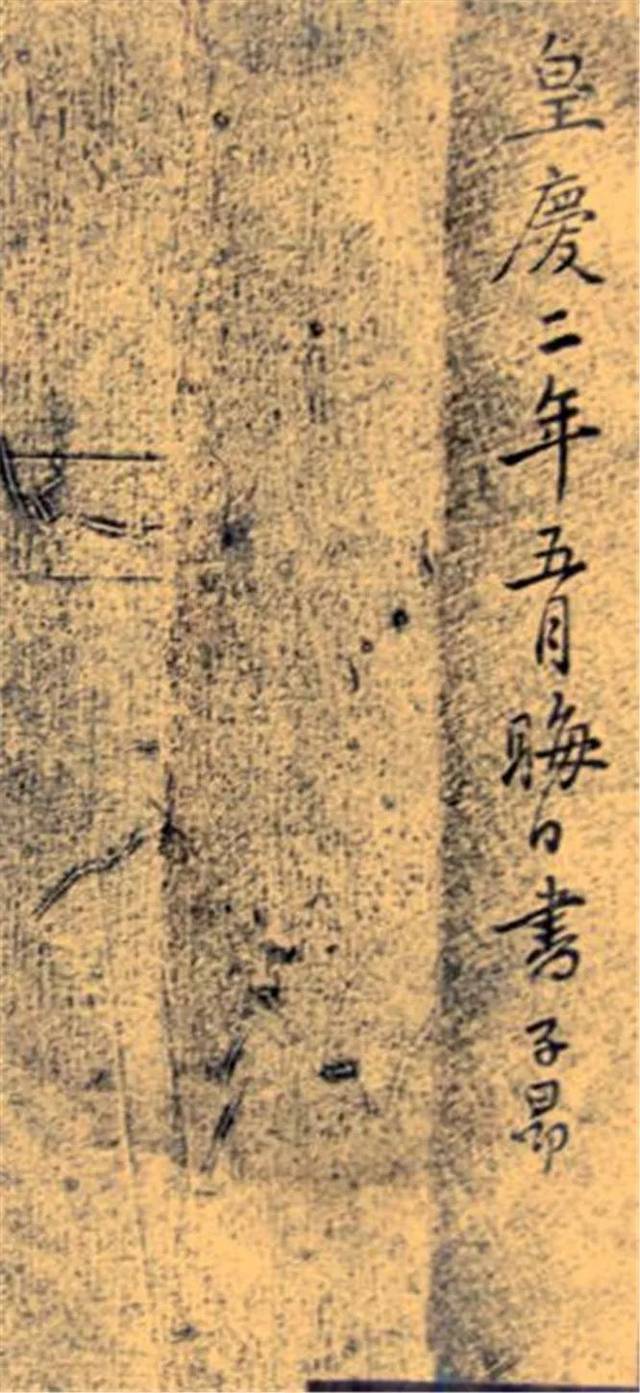 皇慶二年五月晦日書子昂